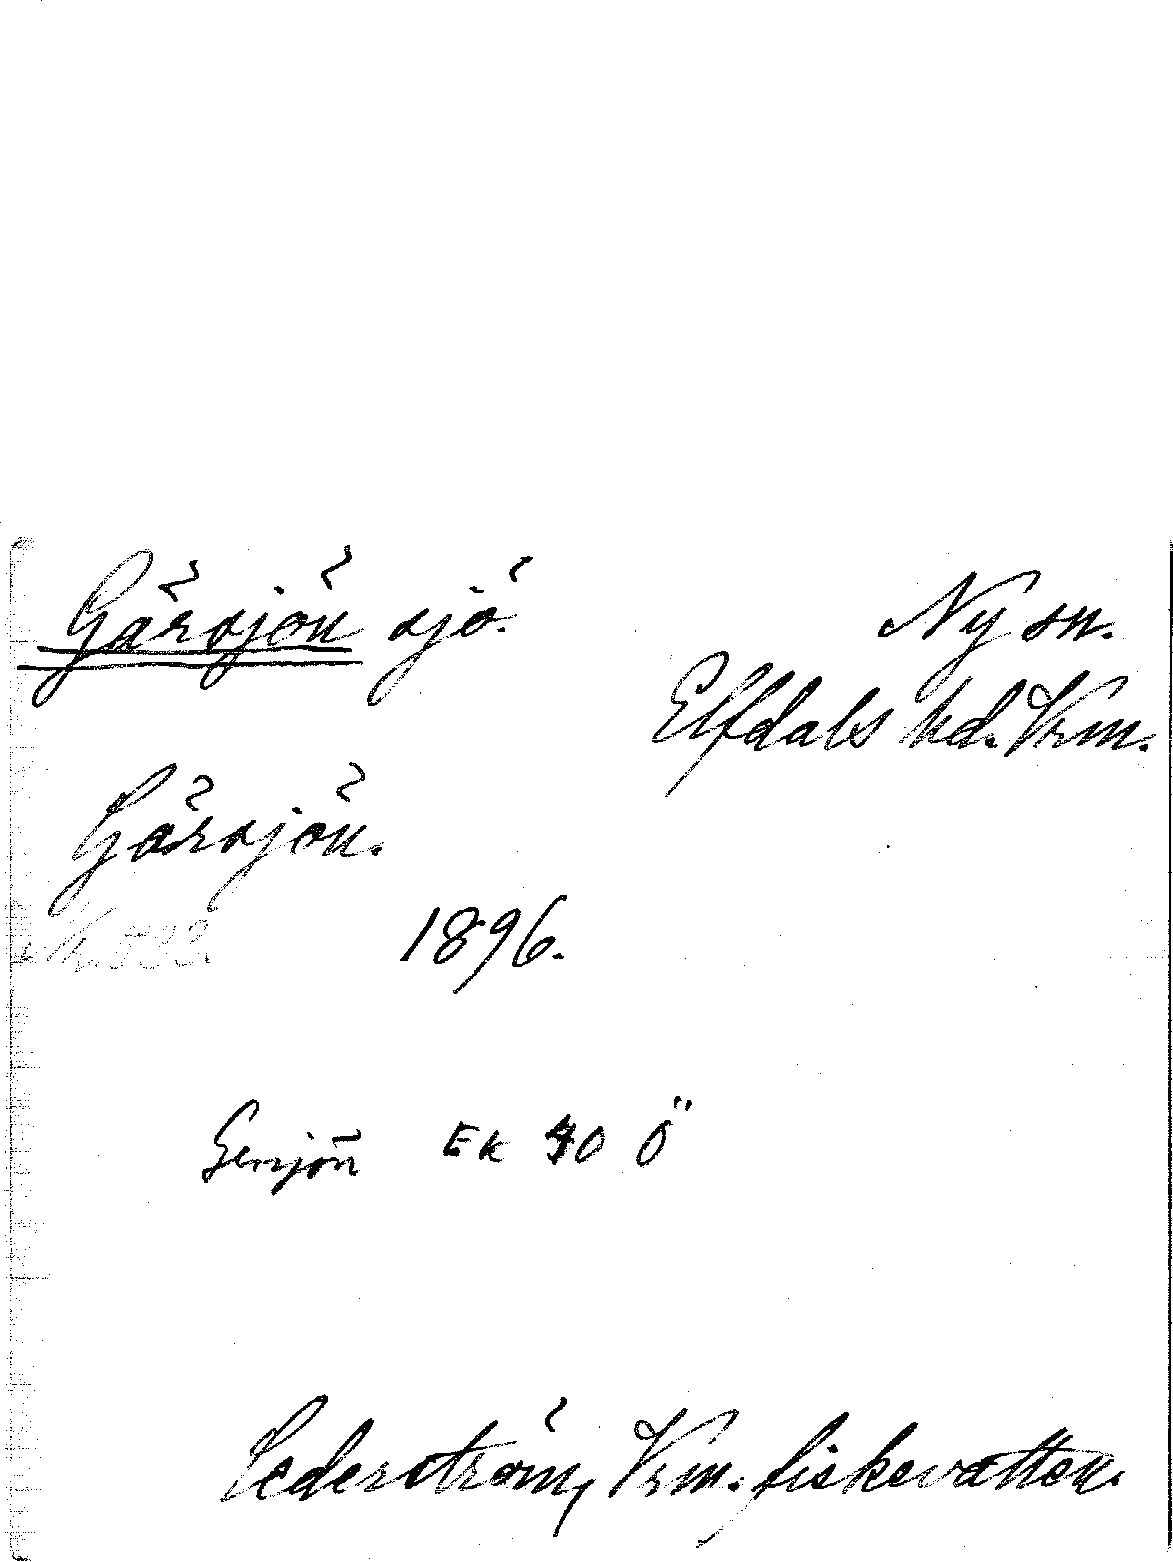 Gärsjön sjö. Ny sn.
Elfdals hd. Vrm.
Gärsjön.
1896.
Gersjön EK 40 Ö
Cederström, Vrm. fiskevatten.